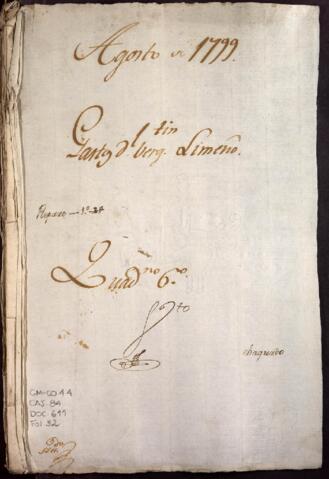 Agosto de 1799.
Gastos dl bergtin Limeño.
Reparo — 1º 27
Quadno 6º
Sto
chaqueado
GM-CO 44
CAJ. 84
DOC. 611
FOL 32